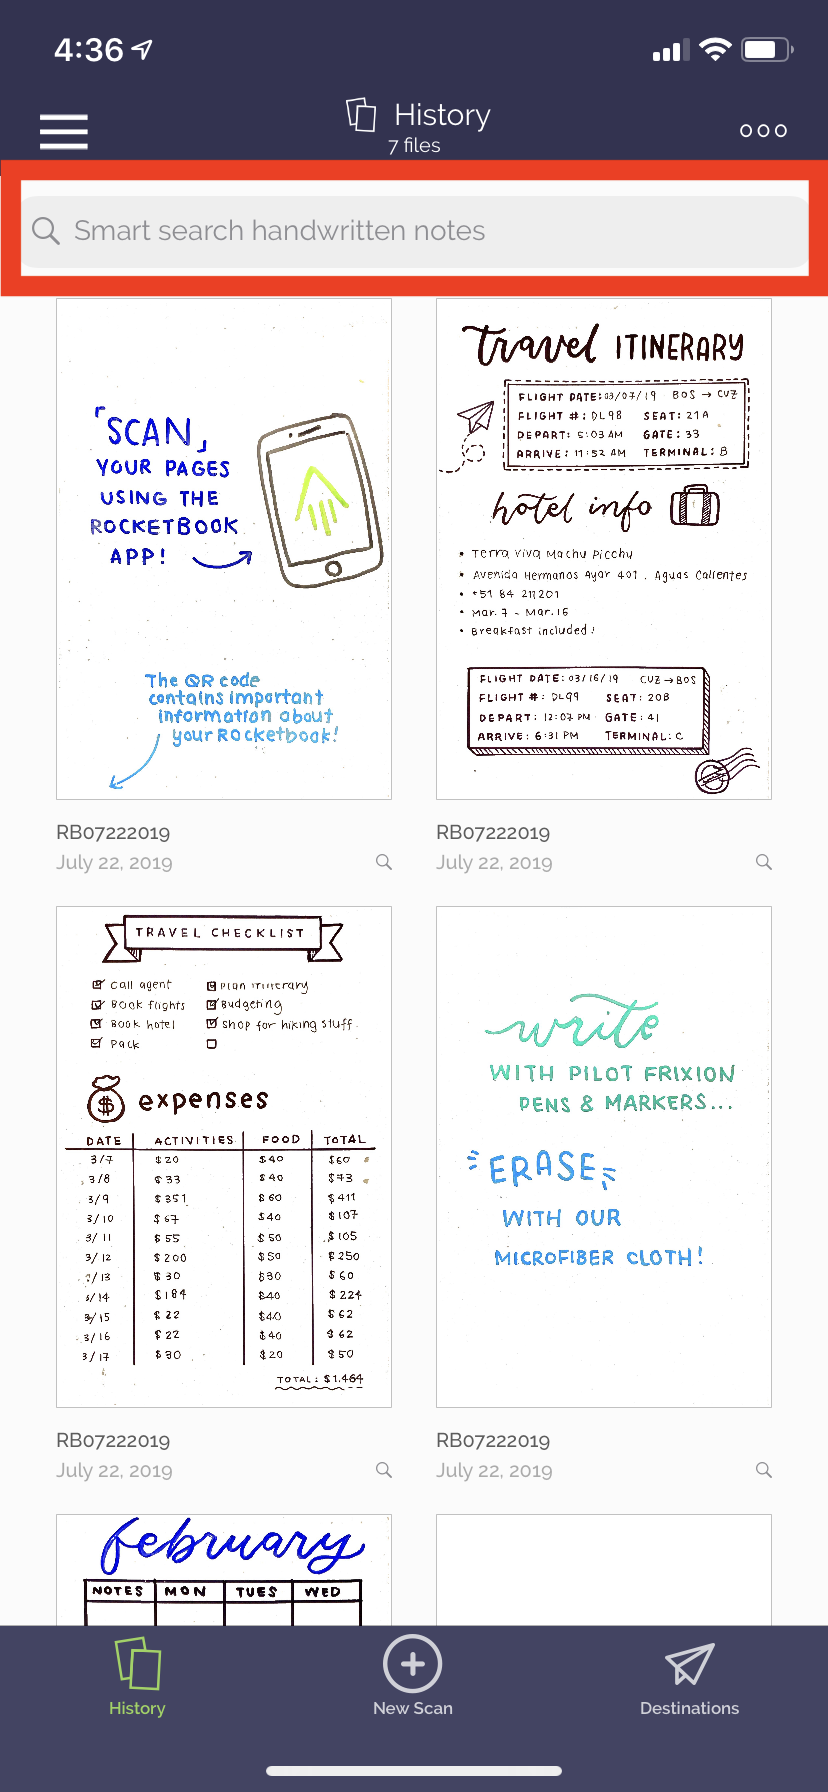 4:36
History
7 files
Smart search handwritten notes
「SCAN」
YOUR PAGES
USING THE
ROCKETBOOK
APP!
The QR code
contains important
information about
your Rocketbook!
RB07222019
July 22, 2019
travel ITINERARY
FLIGHT DATE: 03/07/19 BOS → CUZ
FLIGHT #: DL98 SEAT: 21A
DEPART: 5:03 AM GATE: 33
ARRIVE: 11:52 AM TERMINAL: B
hotel info
• Terra Viva Machu Picchu
• Avenida Hermanos Ayar 401 . Aguas Calientes
• +51 84 211201
• Mar. 7 - Mar. 16
• Breakfast included!
FLIGHT DATE: 03/16/19 CUZ → BOS
FLIGHT #: DL99 SEAT: 20B
DEPART: 12:07 PM GATE: 41
ARRIVE: 6:31 PM TERMINAL: C
RB07222019
July 22, 2019
TRAVEL CHECKLIST
Call agent Plan itinerary
Book flights Budgeting
Book hotel Shop for hiking stuff
Pack
$ expenses
DATE ACTIVITIES FOOD TOTAL
3/7 $20 $40 $60
3/8 $33 $40 $73
3/9 $351 $60 $411
3/10 $67 $40 $107
3/11 $55 $50 $105
3/12 $200 $50 $250
3/13 $30 $30 $60
3/14 $184 $40 $224
3/15 $22 $40 $62
3/16 $22 $40 $62
3/17 $30 $20 $50
TOTAL: $1.464
RB07222019
July 22, 2019
write
WITH PILOT FRIXION
PENS & MARKERS...
ERASE
WITH OUR
MICROFIBER CLOTH!
RB07222019
July 22, 2019
february
NOTES MON TUES WED
History
New Scan
Destinations